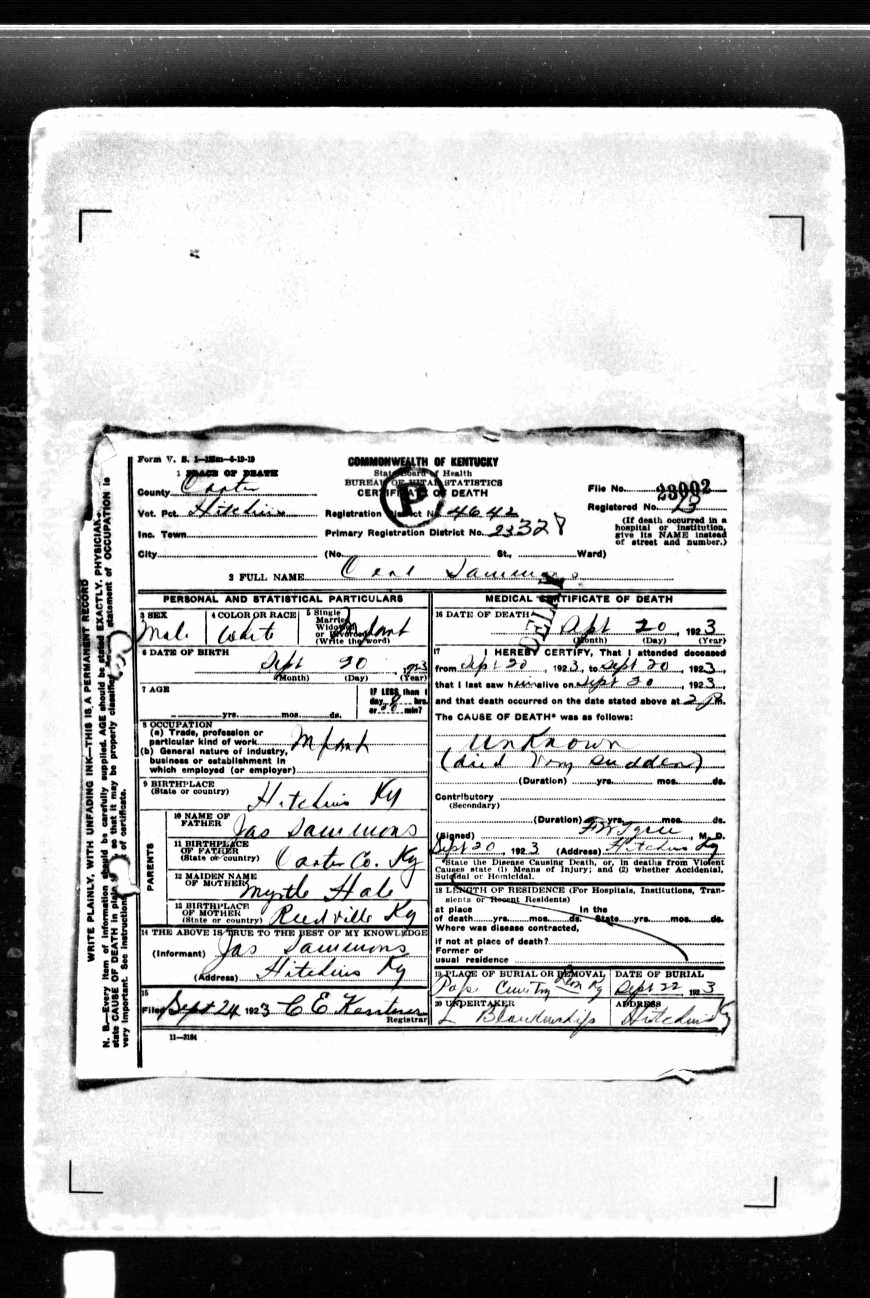 Form V. S. 1—
1 PLACE OF DEATH
County Carter
Vot. Pct. Hitchins
Inc. Town
City
COMMONWEALTH OF KENTUCKY
State Board of Health
BUREAU OF VITAL STATISTICS
CERTIFICATE OF DEATH
P
Registration District No. 4642
Primary Registration District No.
(No. St., Ward)
File No. 23002
Registered No.
(If death occurred in a
hospital or institution,
give its NAME instead
of street and number.)
2 FULL NAME Sammons
DELAY
PERSONAL AND STATISTICAL PARTICULARS
3 SEX
Male
4 COLOR OR RACE
White
5 Single
Married
Widowed
or Divorced
(Write the word)
Infant
6 DATE OF BIRTH
Sept 20, 1923
(Month) (Day) (Year)
7 AGE
yrs. mos. ds.
IF LESS than 1
day hrs.
or min?
8 OCCUPATION
(a) Trade, profession or
particular kind of work Infant
(b) General nature of industry,
business or establishment in
which employed (or employer)
9 BIRTHPLACE
(State or country)
Hitchins Ky
PARENTS
10 NAME OF
FATHER
Jas Sammons
11 BIRTHPLACE
OF FATHER
(State or country)
Carter Co. Ky
12 MAIDEN NAME
OF MOTHER
Myrtle Hale
13 BIRTHPLACE
OF MOTHER
(State or country)
Reedville Ky
14 THE ABOVE IS TRUE TO THE BEST OF MY KNOWLEDGE
(Informant) Jas Sammons
(Address) Hitchins Ky
15
Filed Sept 24 1923 C E
Registrar
11—3184
MEDICAL CERTIFICATE OF DEATH
16 DATE OF DEATH
Sept 20, 1923
(Month) (Day) (Year)
17 I HEREBY CERTIFY, That I attended deceased
from Sept 20, 1923, to Sept 20, 1923,
that I last saw him alive on Sept 20, 1923,
and that death occurred on the date stated above at 2 P.m.
The CAUSE OF DEATH* was as follows:
Unknown
(died very sudden)
(Duration) yrs. mos. ds.
Contributory
(Secondary)
(Duration) yrs. mos. ds.
(Signed) M. D.
Sept 20, 1923 (Address) Hitchins Ky
*State the Disease Causing Death, or, in deaths from Violent
Causes state (1) Means of Injury; and (2) whether Accidental,
Suicidal or Homicidal.
18 LENGTH OF RESIDENCE (For Hospitals, Institutions, Tran-
sients or Recent Residents)
at place In the
of death yrs. mos. ds. State yrs. mos. ds.
Where was disease contracted,
if not at place of death?
Former or
usual residence
19 PLACE OF BURIAL OR REMOVAL
Ky
DATE OF BURIAL
Sept 22 1923
20 UNDERTAKER
ADDRESS
Hitchins Ky
WRITE PLAINLY, WITH UNFADING INK—THIS IS A PERMANENT RECORD
N. B.—Every item of information should be carefully supplied. AGE should be stated EXACTLY. PHYSICIANS
state CAUSE OF DEATH in plain so that it may be properly classified. statement of OCCUPATION is
very important. See instructions of certificate.